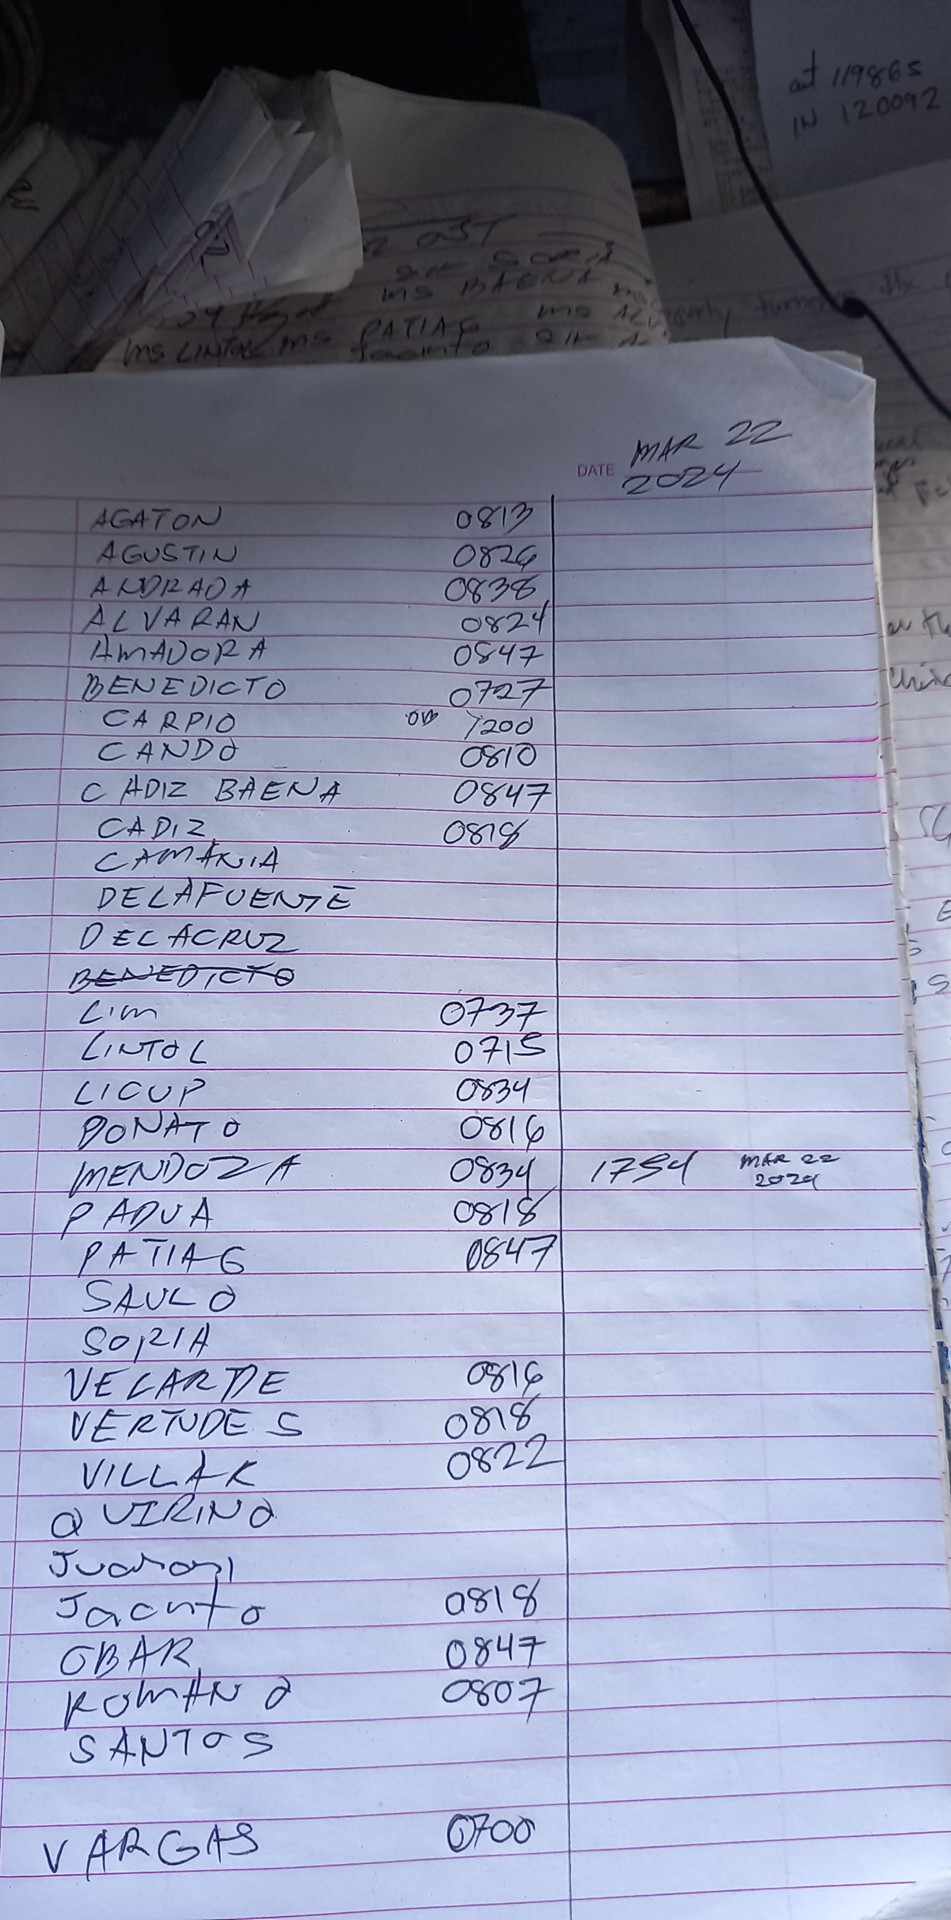 out 119865
IN 120092
MS BAENA
MS LINTOL MS PATIAG MS
Jacinto
DATE MAR 22
2024
AGATON 0813
AGUSTIN 0826
ANDRADA 0838
ALVARAN 0824
AMADORA 0847
BENEDICTO 0727
CARPIO OB 1200
CANDO 0810
CADIZ BAENA 0847
CADIZ 0818
CAMANIA
DELAFUENTE
DELACRUZ
BENEDICTO
Lim 0737
LINTOL 0715
LICUP 0834
DONATO 0816
MENDOZA 0834 1754 MAR 22
2024
PADUA 0818
PATIAG 0847
SAULO
SORIA
VELARDE 0816
VERTUDES 0818
VILLAR 0822
QUIRINO
Jacinto 0818
OBAR 0847
ROMANO 0807
SANTOS
VARGAS 0700